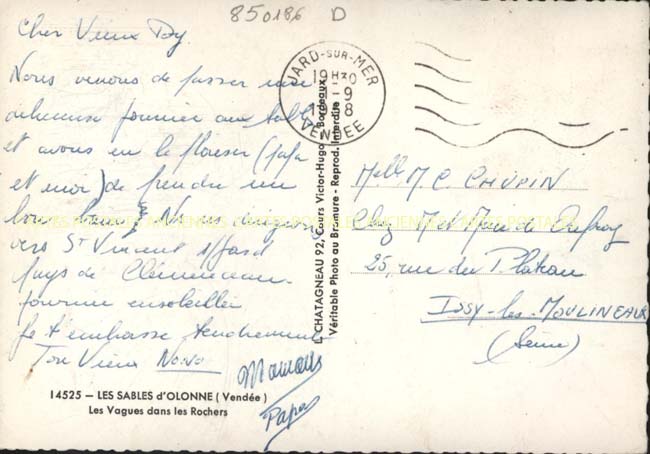 850186 D
Cher Vieux
Nous venons de passer une
délicieuse journée aux Sables
et avons eu le plaisir (papa
et moi) de prendre un
bon bain. Nous
vers St Vincent s/Jard
pays de Clémenceau.
journée ensoleillée
Je t'embrasse tendrement
Ton Vieux Nono
Maman
Papa
14525 — LES SABLES d'OLONNE (Vendée)
Les Vagues dans les Rochers
L. CHATAGNEAU 92, Cours Victor-Hugo, Bordeaux
Véritable Photo au Bromure - Reprod. Interdite
JARD-SUR-MER
19 H 30
-9
8
VENDEE
Melle M. C. CHUPIN
Chez M et Mme de
25, rue du Plateau
ISSY-les-MOULINEAUX
(Seine)